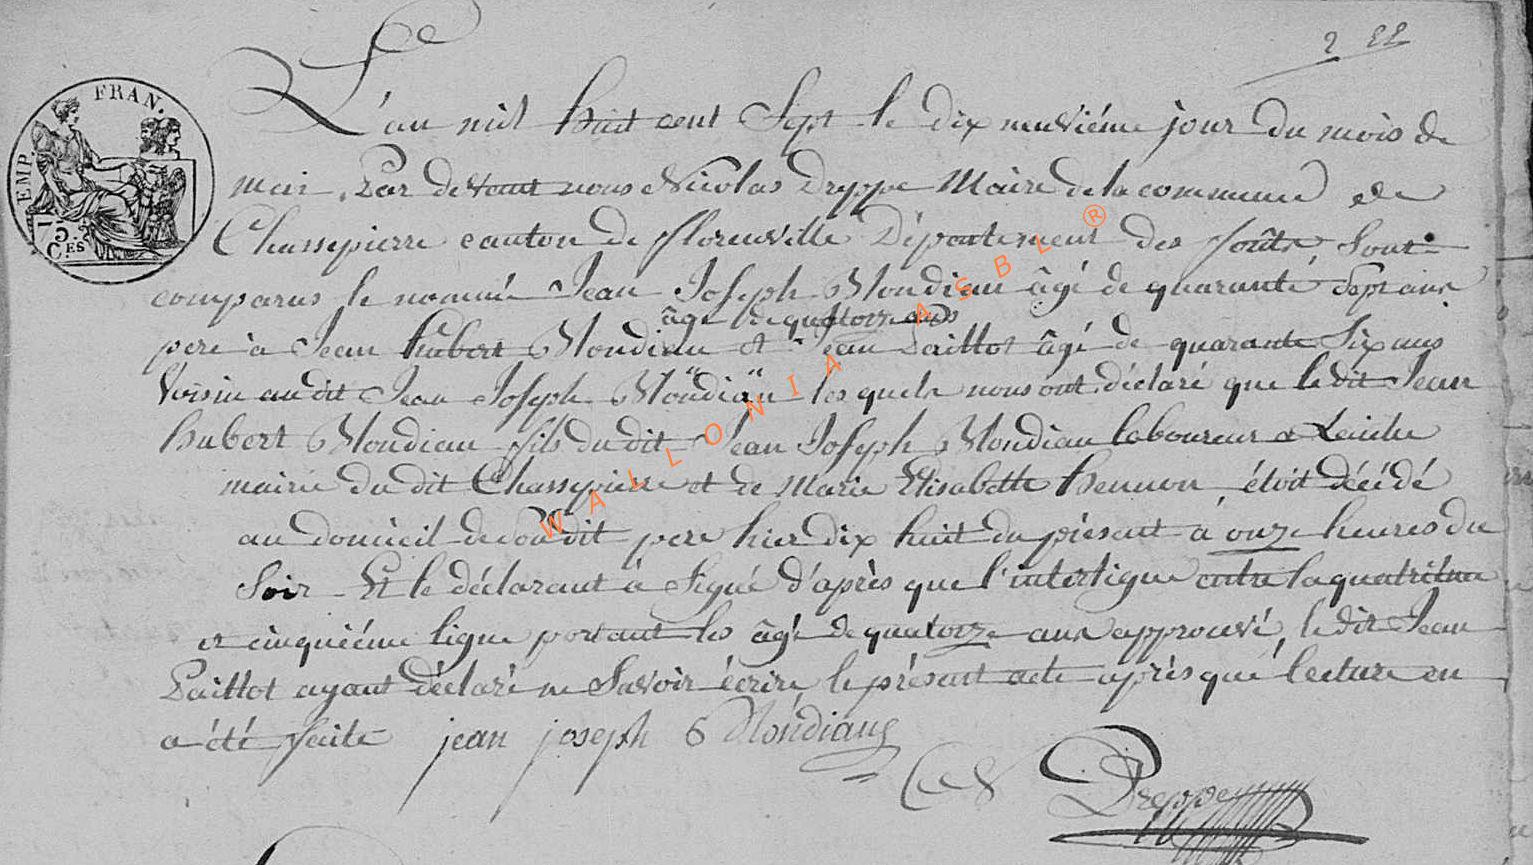 2 22
EMP. FRAN.
75
C.ES
L'an mil huit cent Sept le dix neuvième jour du mois de
mai, Par devant nous Nicolas Dreppe Maire de la commune de
Chassepierre canton de florenville Département des forêts, Sont
comparus le nommé Jean Joseph Mondiau âgé de quarante Sept ans
âgé de quatorze ans
pere à Jean hubert Mondiau et Jean Paillot âgé de quarante Six ans
Voisin au dit Jean Joseph Mondiau les quels nous ont déclaré que le dit Jean
hubert Mondiau fils du dit Jean Joseph Mondiau laboureur a
mairie du dit Chassepierre et de Marie Elisabette hennon, étoit décédé
au domicil de son dit pere hier dix huit du présent à onze heures du
Soir - Et le déclarant à Signé d'après que l'interligne entre la quatrième
et cinquième ligne portant les âgé de quatorze ans approuvé, le dit Jean
Paillot ayant déclaré ne Savoir écrire le présent acte après que lecture en
a été faite jean joseph Mondiaus
Dreppe
WALLONIA ASBL ®